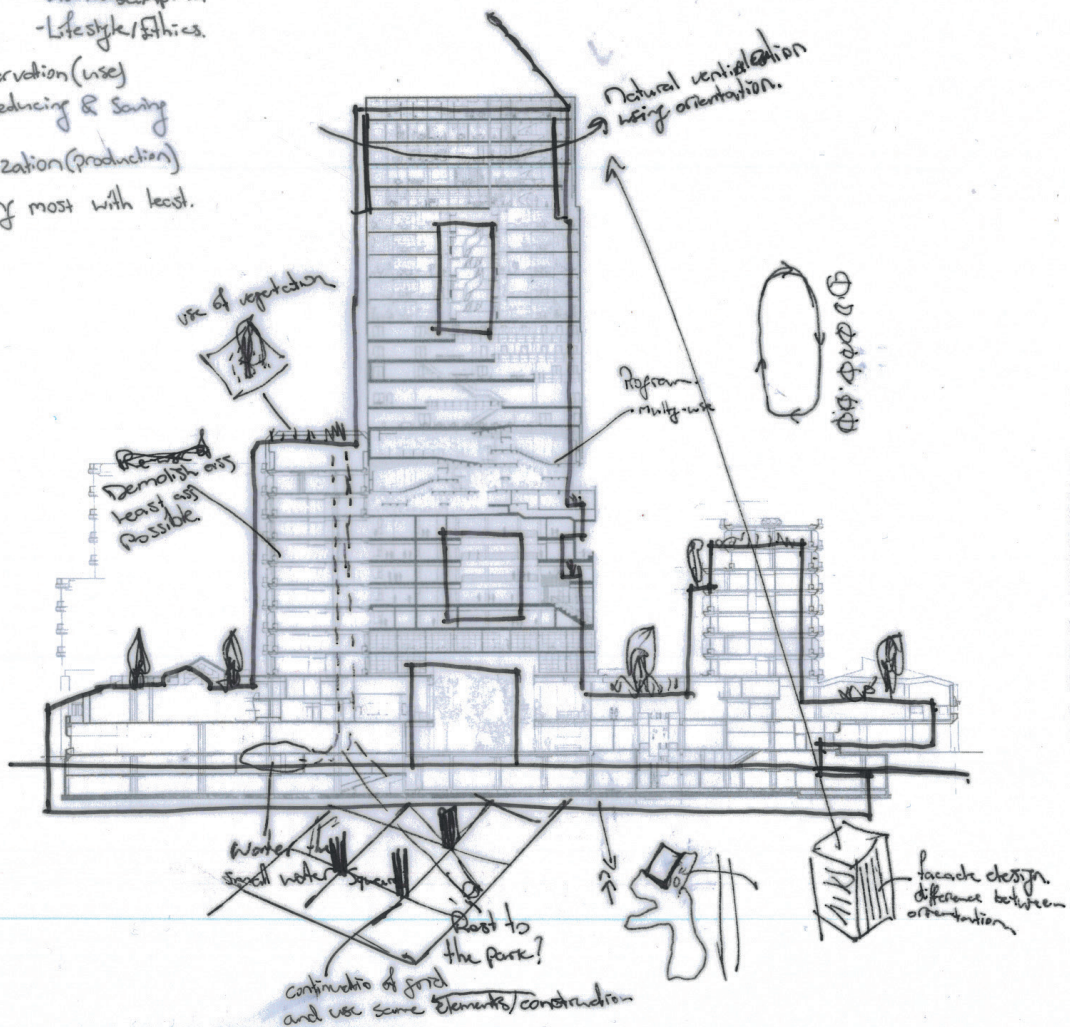 -Lifestyle/Ethics.
rvation (use)
educing & Saving
zation (production)
most with least.
Natural
using orientation.
use of vegetation
Program
multy-use
Re-use
Demolish ass
Least ass
possible.
Water
small water square
Rest to
the park?
continuatio of grid
and use same elements/construction
facade design.
difference between
orientation